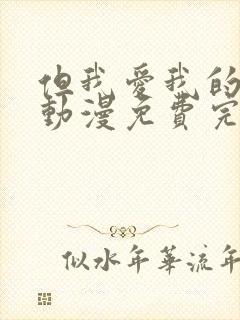 但我愛我的
動漫免費完
似水年華流年